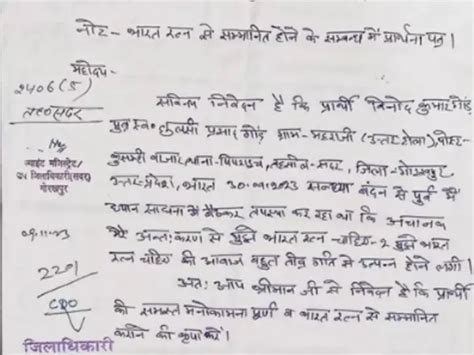 नोट - भारत रत्न से सम्मानित होने के सम्बन्ध में प्रार्थना पत्र।
महोदय-
2406(S)
सविनय निवेदन है कि प्रार्थी विनोद कुमार गौड़
पुत्र स्व० तुलसी प्रसाद गौड़ ग्राम- महराजी (उत्तर टोला), पोस्ट-
बाजार, थाना- पिपराइच, तहसील- सदर, जिला- गोरखपुर
उत्तर-प्रदेश, भारत 30.09.2023 सन्ध्या वंदन से पूर्व में
ध्यान साधना में बैठकर तपस्या कर रहा था कि अचानक
मेरे अन्तःकरण से मुझे भारत रत्न चाहिए-2 मुझे भारत
रत्न चाहिए की आवाज बहुत तीव्र गति से उत्पन्न होने लगी।
अतः आप श्रीमान जी से निवेदन है कि प्रार्थी
की समस्त मनोकामना पूर्ण व भारत रत्न से सम्मानित
कराने की कृपा करें।
ज्वाइंट मजिस्ट्रेट/
उप जिलाधिकारी (सदर)
गोरखपुर
2201
CDO
जिलाधिकारी